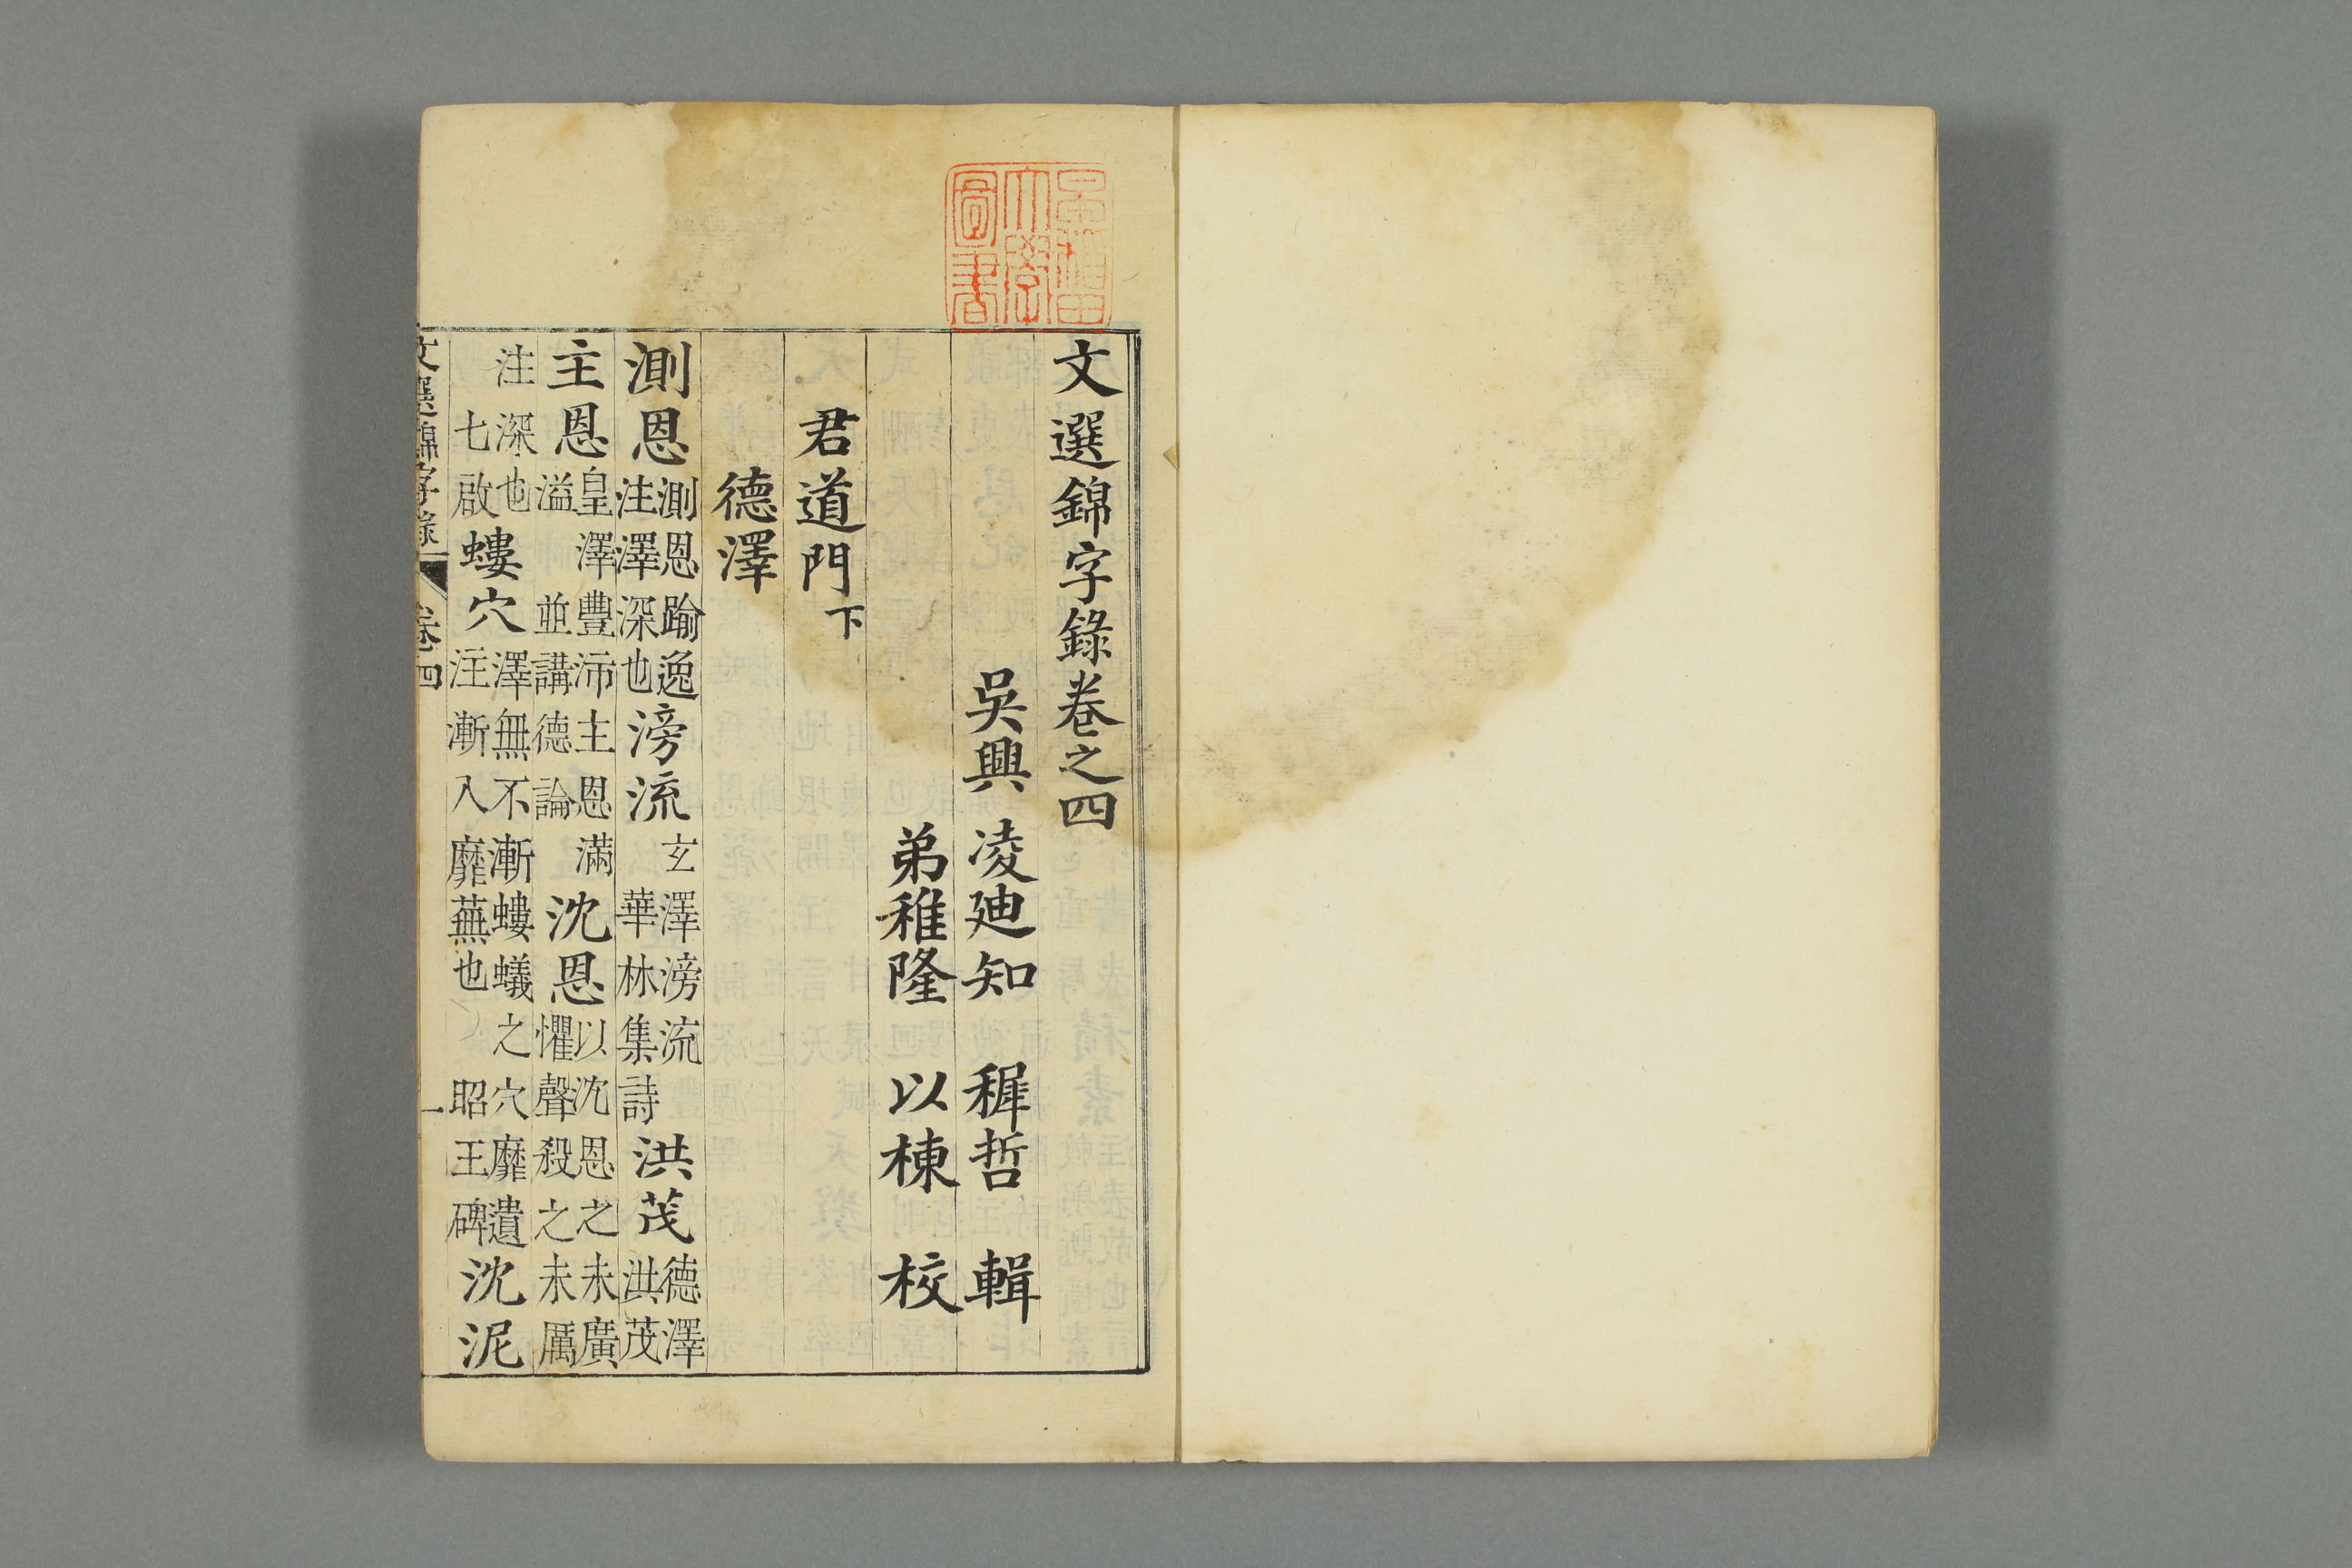 早稻田
大學
圖書
文選錦字錄卷之四
吳興 凌迪知 穉哲 輯
弟稚隆 以棟 校
君道門下
德澤
測恩 測恩踰逸注澤深也 滂流 玄澤滂流華林集詩 洪茂 德澤洪茂
主恩 皇澤豐沛主恩滿溢 並講德論 沈恩 以沈恩之未廣懼聲殺之未厲
注深也 七啟 螻穴 澤無不漸螻蟻之穴靡遺注漸入靡蕪也 昭王碑 沈泥
文選錦字錄 卷四 一